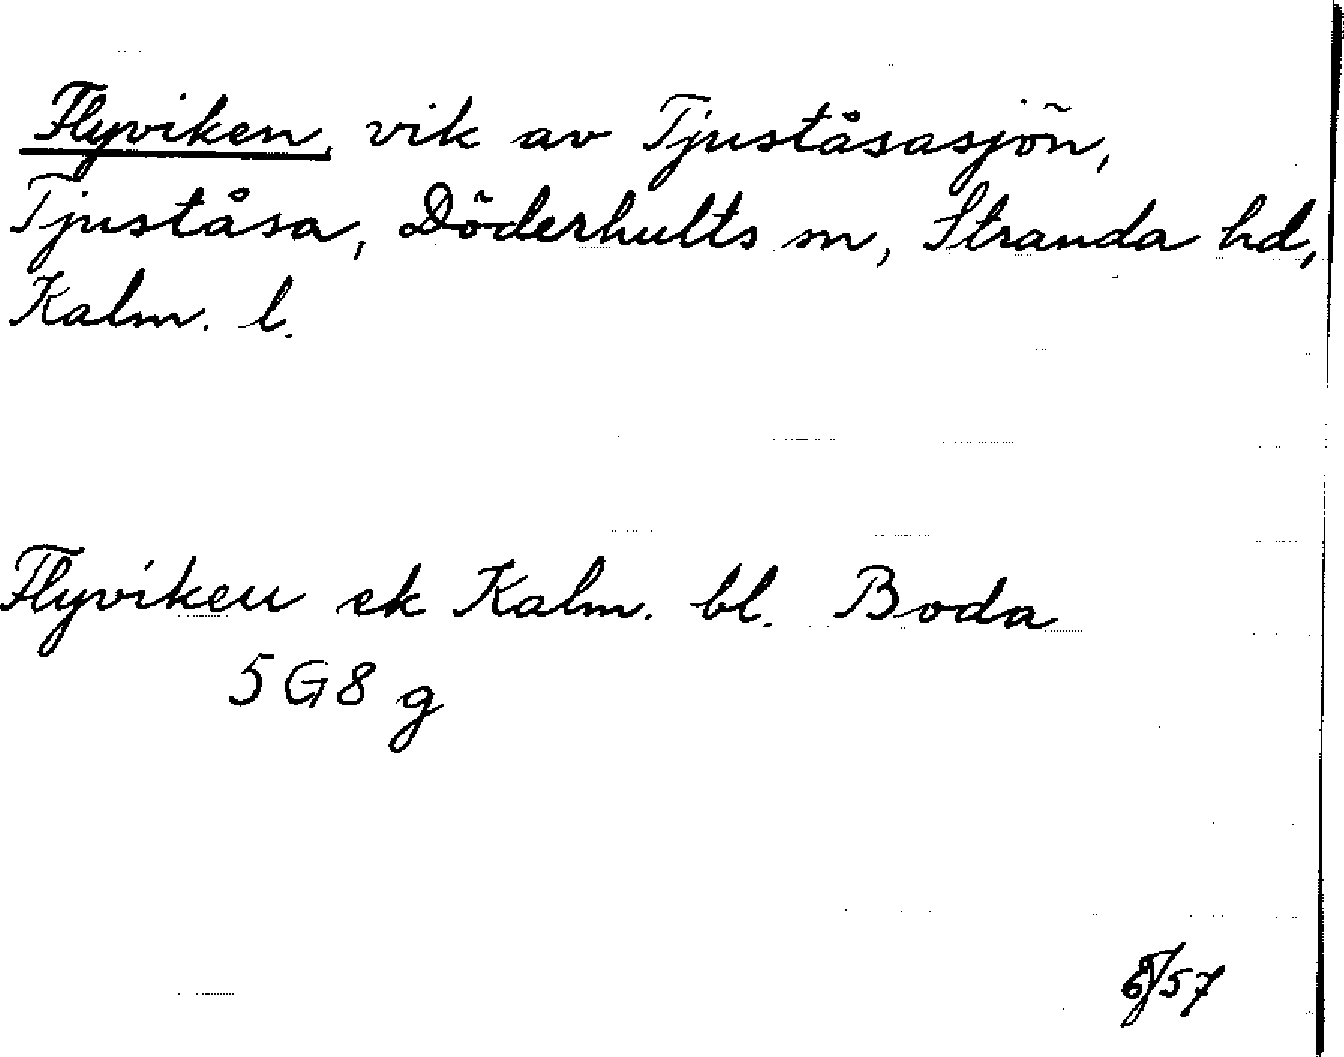 Flyviken, vik av Tjuståsasjön,
Tjuståsa, Döderhults sn, Stranda hd,
Kalm. l.
Flyviken ek Kalm. bl. Boda
5G8 g